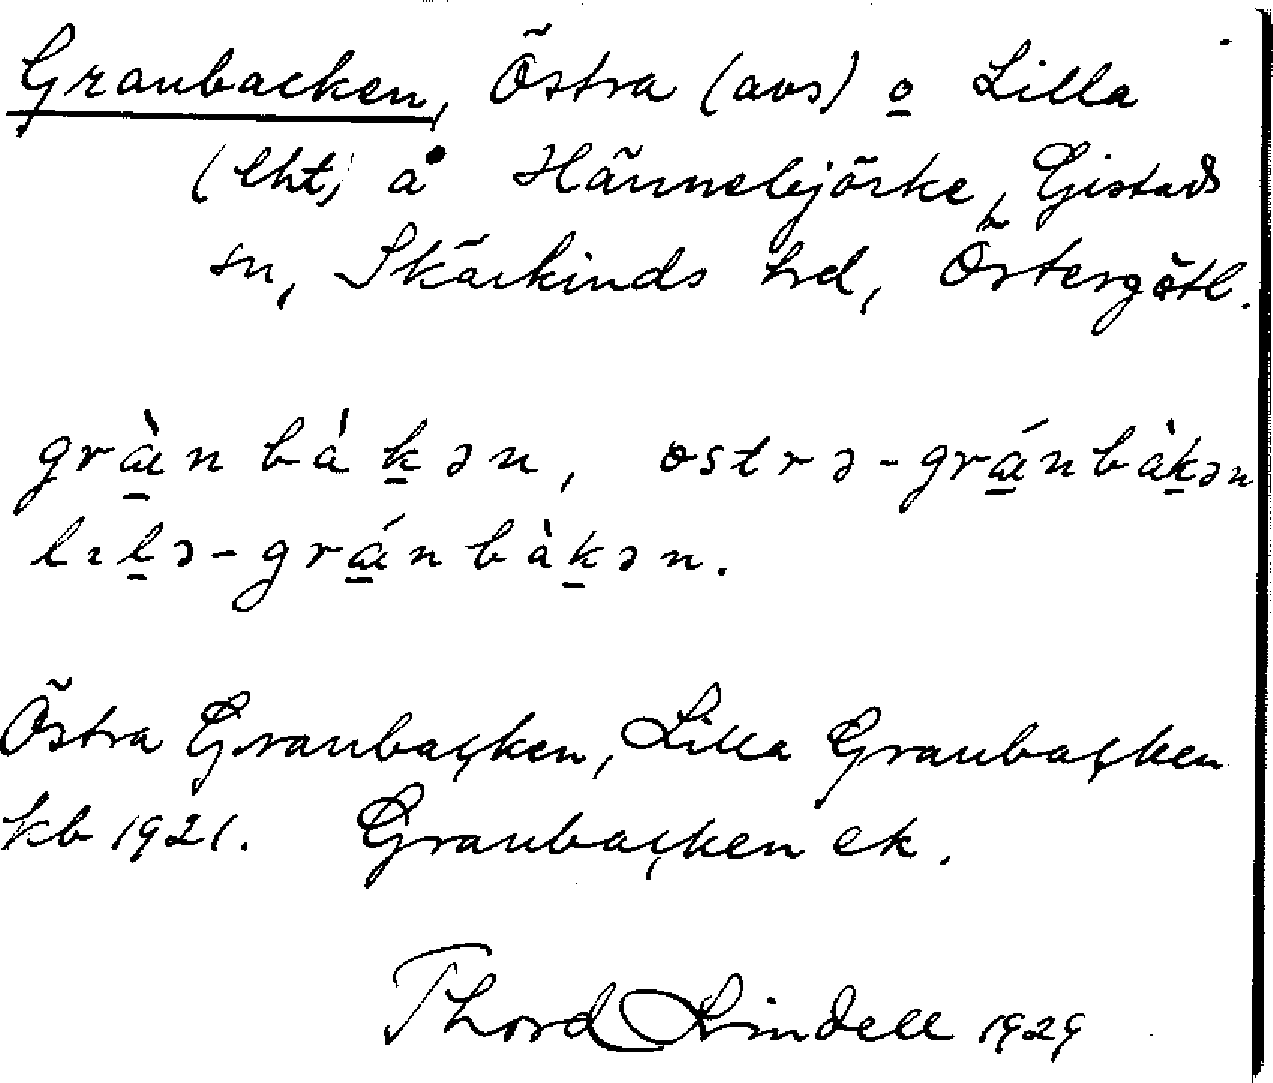 Granbacken, Östra (avs) o Lilla
(lht) å Hännebjörke, Gistads
sn, Skärkinds hrd, Östergötl.
gràn bàkən, ostrə-gránbàkən
lɩlə-gránbàkən.
Östra Granbacken, Lilla Granbacken
kb 1921. Granbacken ek.
Thord Lindell 1929